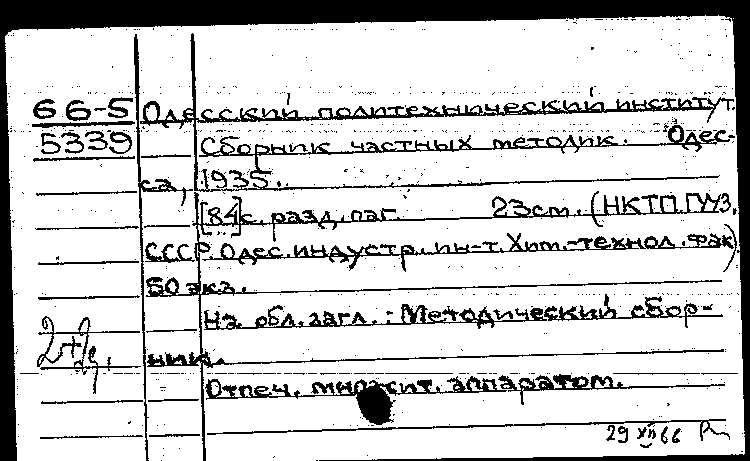 66-5 Одесский политехнический институт.
5339 Сборник частных методик. Одес-
са, 1935.
[84]с. разд. паг. 23см. (НКТП.ГУУЗ.
СССР. Одес. индустр. ин-т. Хим.-технол. фак)
50 экз.
На обл. загл.: Методический сбор-
ник.
Отпеч. множит. аппаратом.
29 XII 66